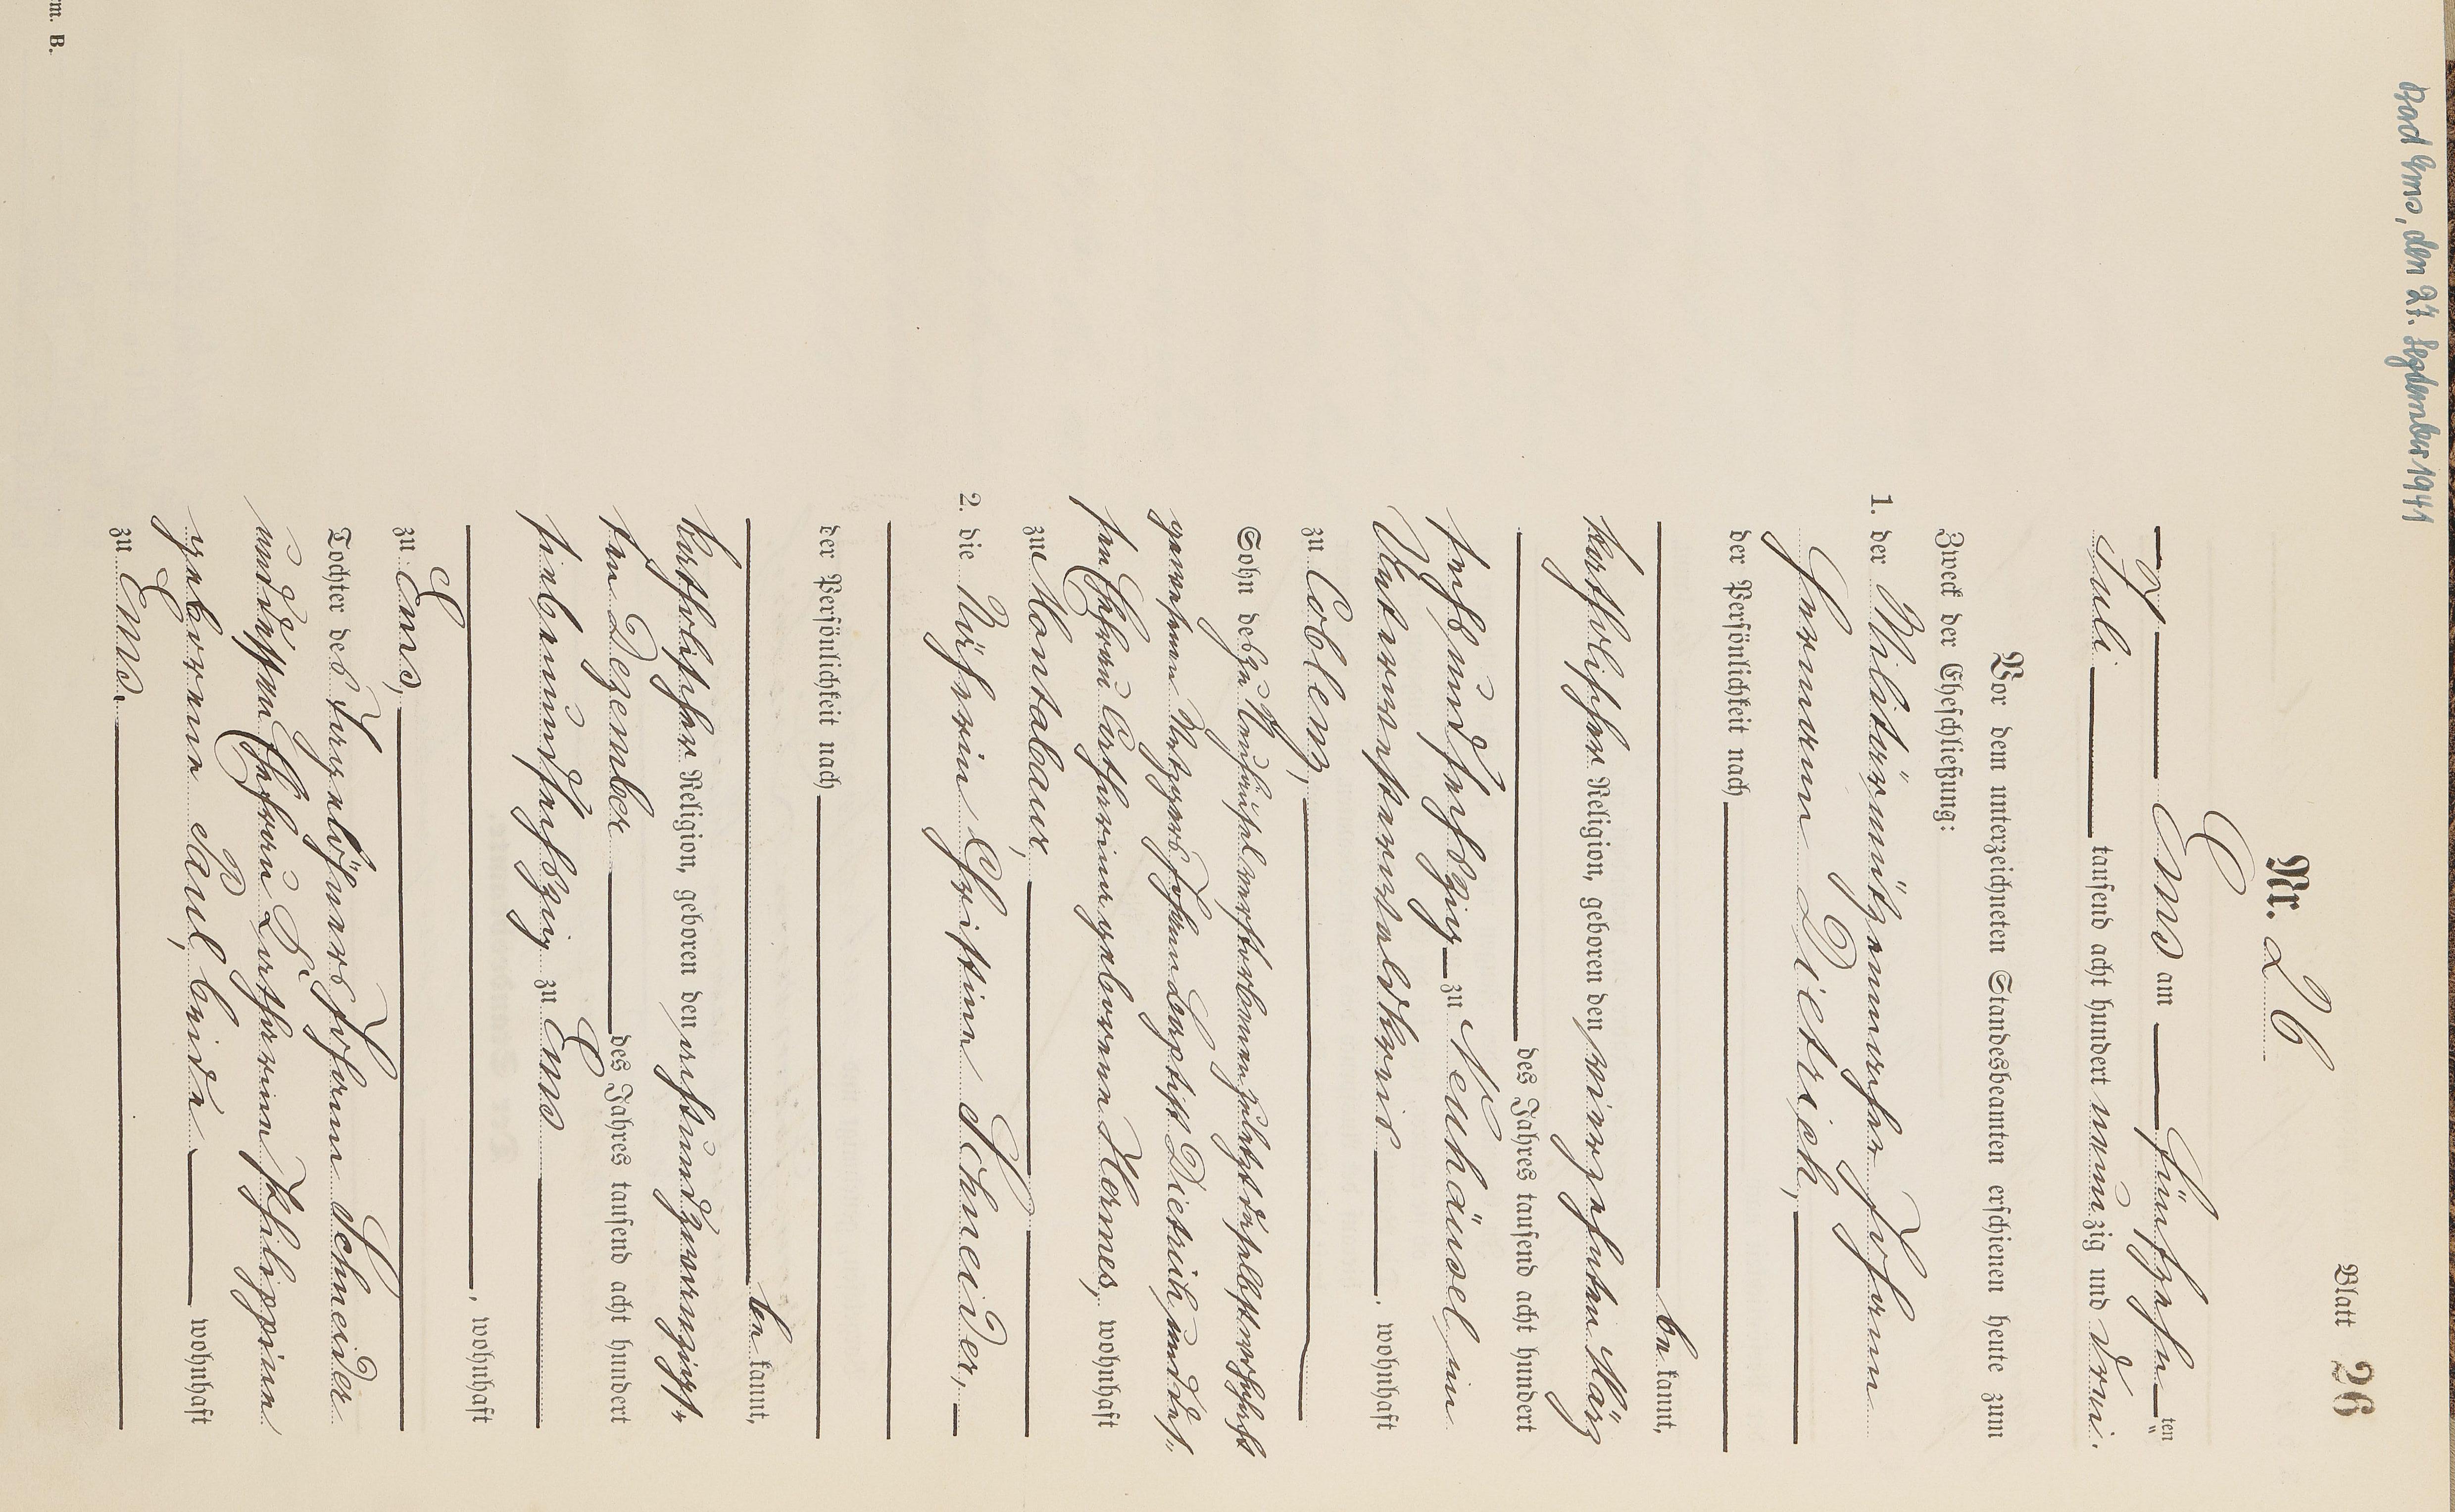 Bad Ems, den 27. September 1941
Blatt 26
Nr. 26
Ems am fünfzehnten
Juli tausend acht hundert neunzig und drei.
Vor dem unterzeichneten Standesbeamten erschienen heute zum
Zweck der Eheschließung:
1. der Militäranwärter Johann
Hermann Dietrich,
der Persönlichkeit nach
be kannt,
katholischer Religion, geboren den vierzehnten März
des Jahres tausend acht hundert
sechsundsechszig zu Neuhäusel im
Unterwesterwaldkreis, wohnhaft
zu Coblenz,
Sohn des zu Neuhäusel verstorbenen zuletzt daselbst wohnhaft
gewesenen Metzgers Johann Baptist Dietrich und des-
sen Ehefrau Catharina geborene Hermes, wohnhaft
zu Montabaur,
2. die Näherin Christina Schneider,
der Persönlichkeit nach
be kannt,
katholischer Religion, geboren den achtundzwanzigs-
ten Dezember des Jahres tausend acht hundert
siebenundsechszig zu Ems
, wohnhaft
zu Ems,
Tochter des Tagelöhners Johann Schneider
und dessen Ehefrau Katharina Philippina
geborene Paul, beide wohnhaft
zu Ems.
rm. B.